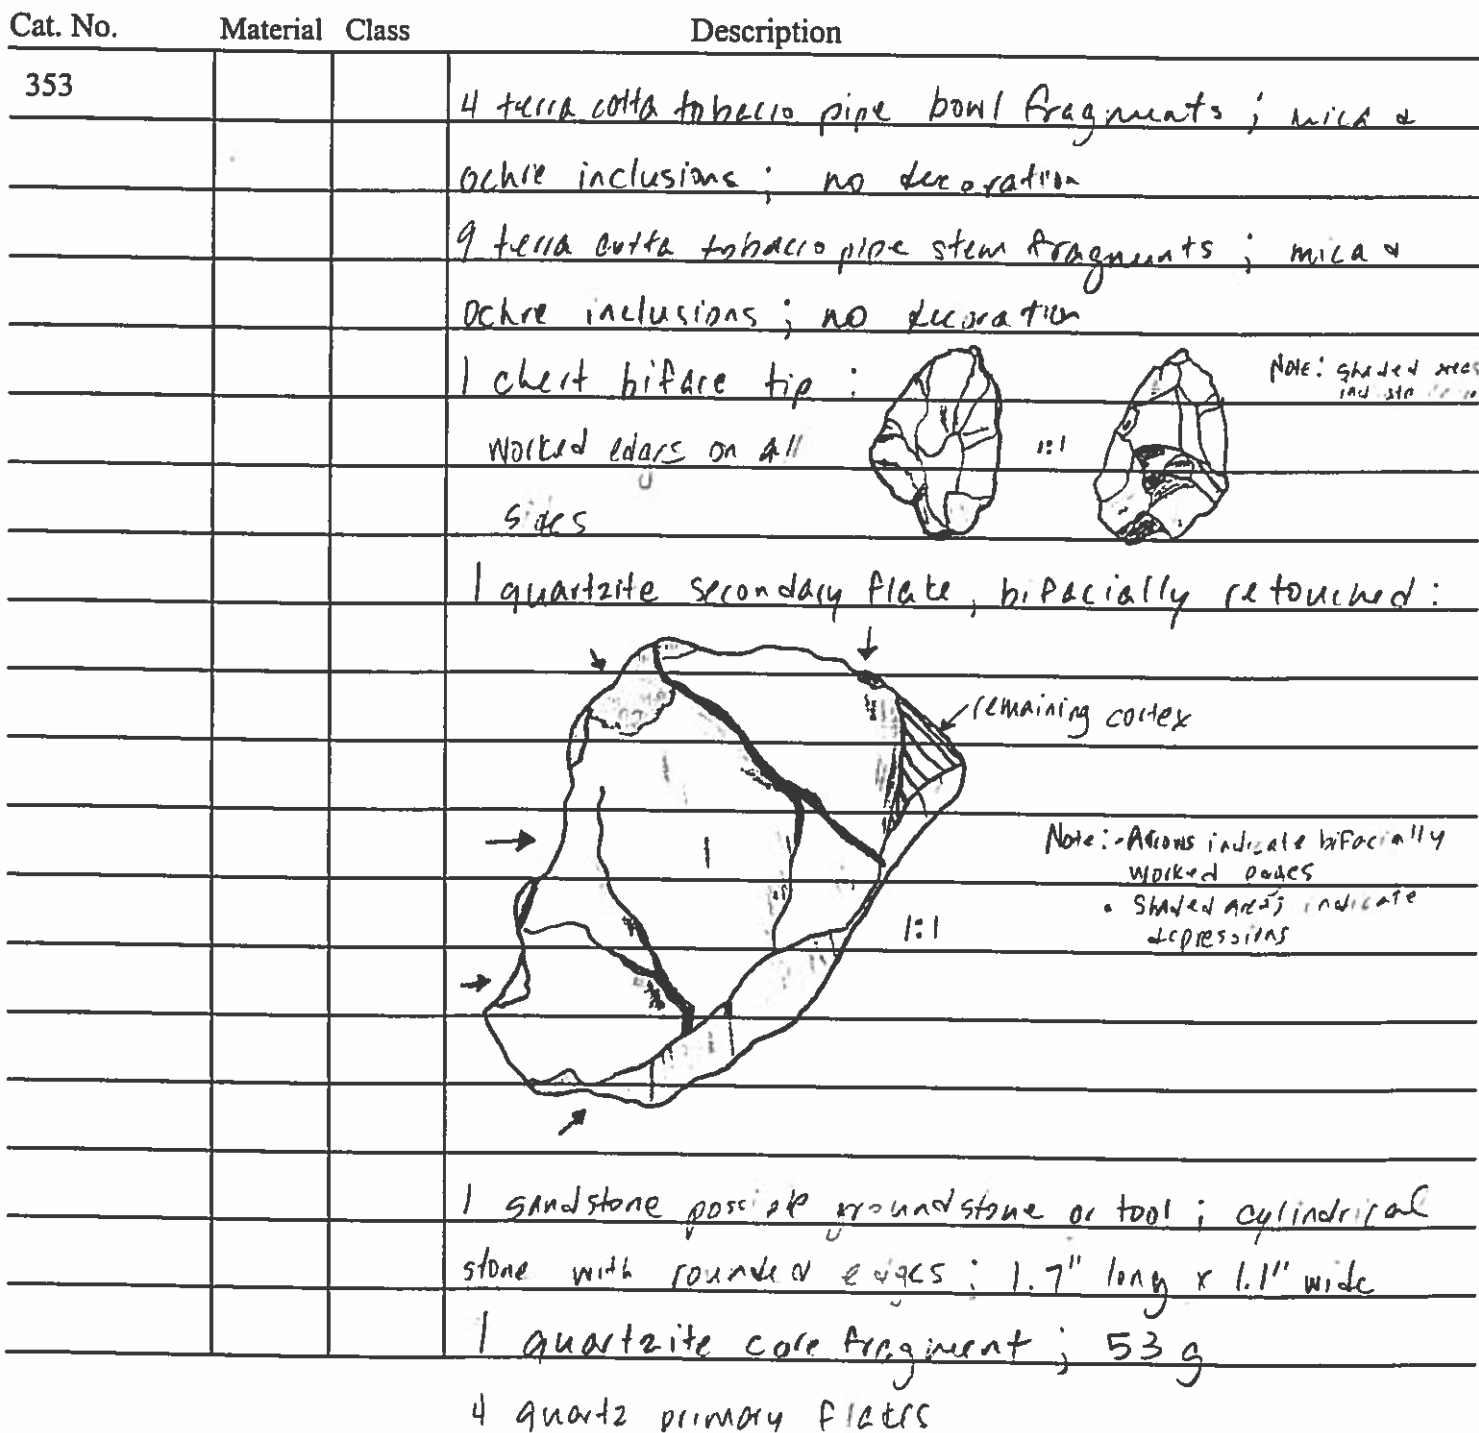 Cat. No. Material Class Description
353
4 terra cotta tobacco pipe bowl fragments ; mica &
ochre inclusions ; no decoration
9 terra cotta tobacco pipe stem fragments ; mica &
ochre inclusions ; no decoration
1 chert biface tip :
Note: shaded areas
worked edges on all
1:1
sides
1 quartzite secondary flake, bifacially retouched :
remaining cortex
Note: - Arrows indicate bifacially
worked edges
• Shaded areas indicate
depressions
1:1
1 sandstone possible groundstone or tool ; cylindrical
stone with rounded edges ; 1.7" long x 1.1" wide
1 quartzite core fragment ; 53 g
4 quartz primary flakes